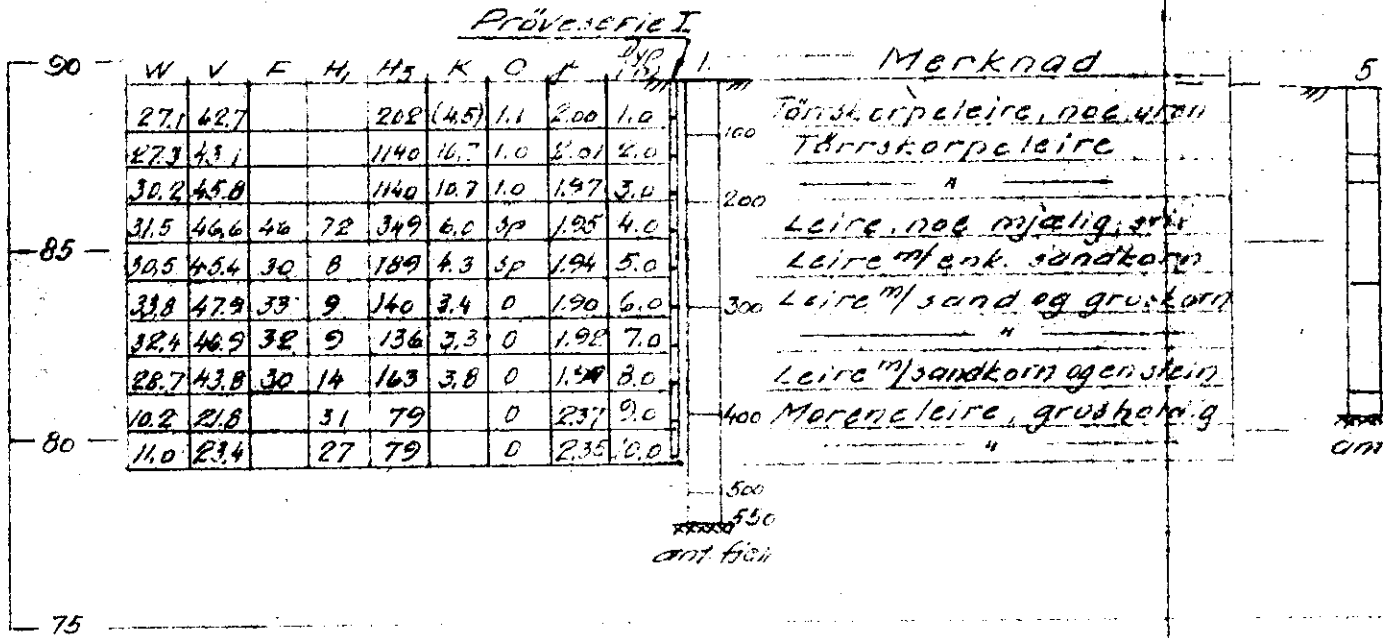 Pröveserie I
90 W V F H₁ H₃ K O γ Dyp i m 1. Merknad 5
27.1 42.7 202 (4.5) 1.1 2.00 1.0 Törrskorpeleire, noe uren
100
27.3 43.1 1140 16.7 1.0 2.01 2.0 Törrskorpeleire
30.2 45.8 1140 10.7 1.0 1.97 3.0 "
200
31.5 46.6 46 72 349 6.0 sp 1.95 4.0 Leire, noe mjælig,
85
30.5 45.4 30 8 189 4.3 sp 1.94 5.0 Leire m/enk. sandkorn
33.8 47.9 33 9 140 3.4 0 1.90 6.0 Leire m/sand og gruskorn
300
32.4 46.9 32 9 136 3.3 0 1.92 7.0 "
28.7 43.8 30 14 163 3.8 0 8.0 Leire m/sandkorn og en stein
10.2 21.8 31 79 0 2.37 9.0 Moreneleire, grusholdig
400
80
11.0 23.4 27 79 0 2.35 10.0 "
ant
500
550
ant. fjell
75